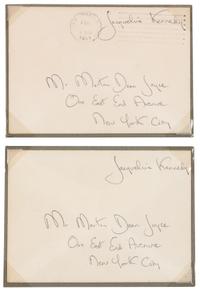 Jacqueline Kennedy
Mr. Martin Dean Joyce
One East End Avenue
New York City
Jacqueline Kennedy
Mr Martin Dean Joyce
One East End Avenue
New York City